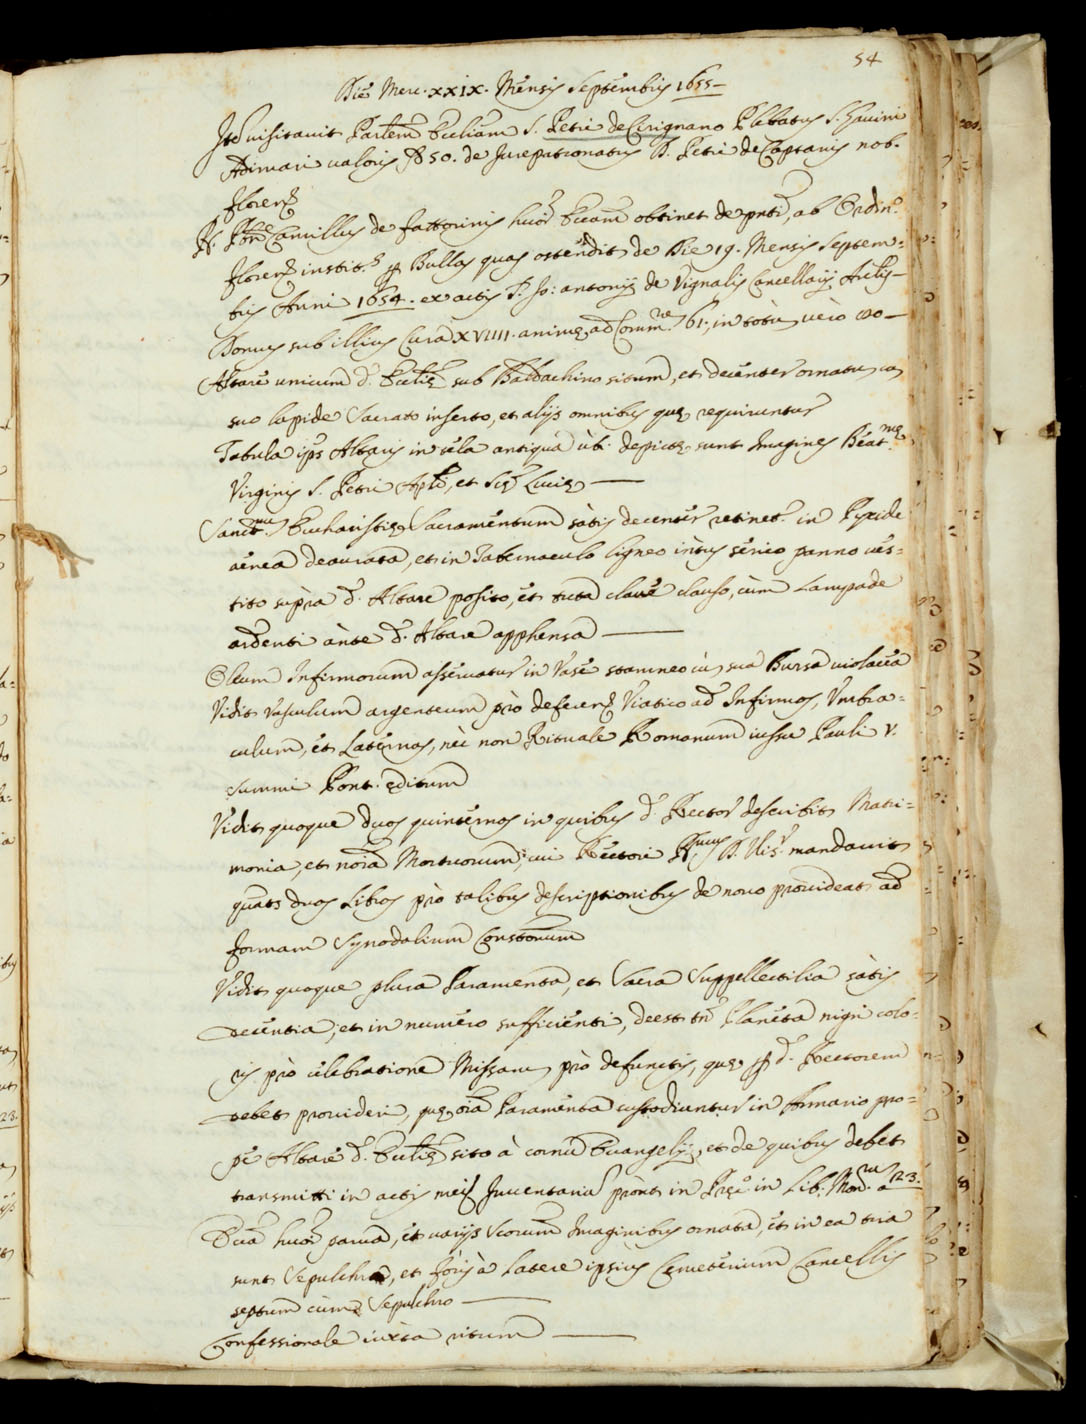 54
Die Merc. XXIX. Mensis Septembris 1655
visitavit Parlem Eccliam S. Petri de Cirignano Plebatus S. Gavini
Adimari valoris 50. de Jurepatronatus D. Petri de Captanis nob.
Floren
R. Camillus de Fattorinis huiõ Ecciam obtinet de pnti, ab Ordin.º
Floren instit.s Bullas quas ostendit de Die 19. Mensis Septem=
bris Anni 1654. ex actis D. Jo: antonij de Vignalis Cancellarij
Domus sub illius Cura XVIIII. animæ ad Comm.ne 61. in totu vero 100
Altare unicum d. Eccliæ sub Baldachino situm, et decenter ornatu cu
suo lapide Sacrato inserto, et alijs omnibus quæ requiruntur
Tabula ips Altaris in tela antiqua ub. depictæ sunt Imagines Beat.mæ
Virginis S. Petri Apli, et Sctæ Luciæ
Sanct.mu Eucharistiæ Sacramentum satis decenter retinet. in Pyxide
aenea deaurata, et in Tabernaculo ligneo intus serico panno ves=
tito supra d. Altare posito, et tuta clave clauso, cum Lampade
ardenti ante d. Altare apphensa
Oleum Infirmorum asservatur in Vase stamneo cu sua Bursa violacea
Vidit Vasculum argenteum pro deferen Viatico ad Infirmos, Umbra=
culum, et Laternas, nec non Rituale Romanum iussu Pauli V.
summi Pont. editum
Vidit quoque duos quinternos in quibus d. Rector describit Matri=
monia, et noia Mortuorum, cui Rectori R.mus D. Vis.r mandavit
quats duos Libros pro talibus descriptionibus de novo provideat ad
formam Synodalium Constonum
Vidit quoque plura Paramenta, et Sacra Suppellectilia satis
decentia, et in numero sufficienti, deest tn Planeta nigri colo=
ris pro celebratione Missaru pro defunctis, quæ p d. Rectorem
debet provideri, quæ oia Paramenta custodiuntur in Armario pro=
pe Altare d. Eccliæ sito a cornu Evangelij, et de quibus debet
transmitti in actis meis Inventaria prout in in Lib. a 23.
Ecca huiõ parva, et varijs Scorum Imaginibus ornata, et in ea tria
sunt Sepulchra, et foris a Latere ipsius Cemeterium Cancellis
septum cum Sepulchro
Confessionale iuxta ritum